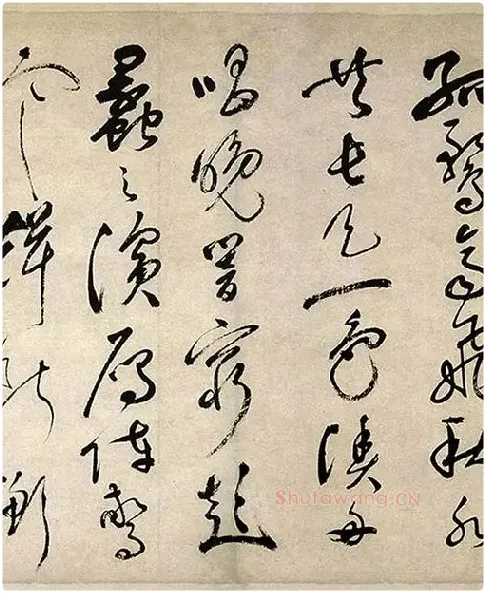 孤鶩齊飛秋水
共長天一色漁舟
唱晚響窮彭
蠡之濱鴈陣驚
寒聲斷衡
Shufawang.CN